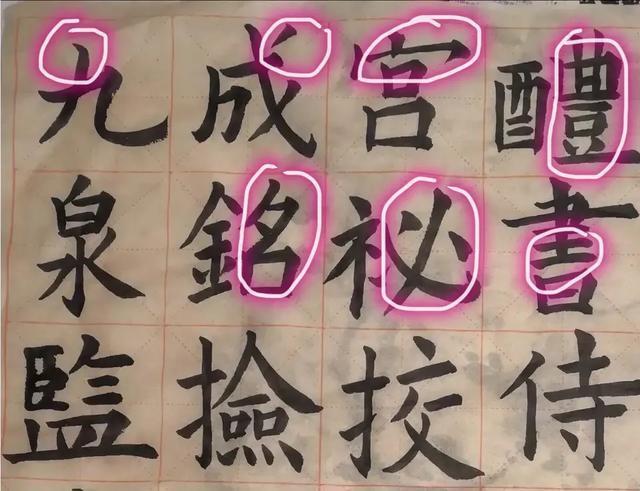 九成宮醴
泉銘祕書
監撿挍侍